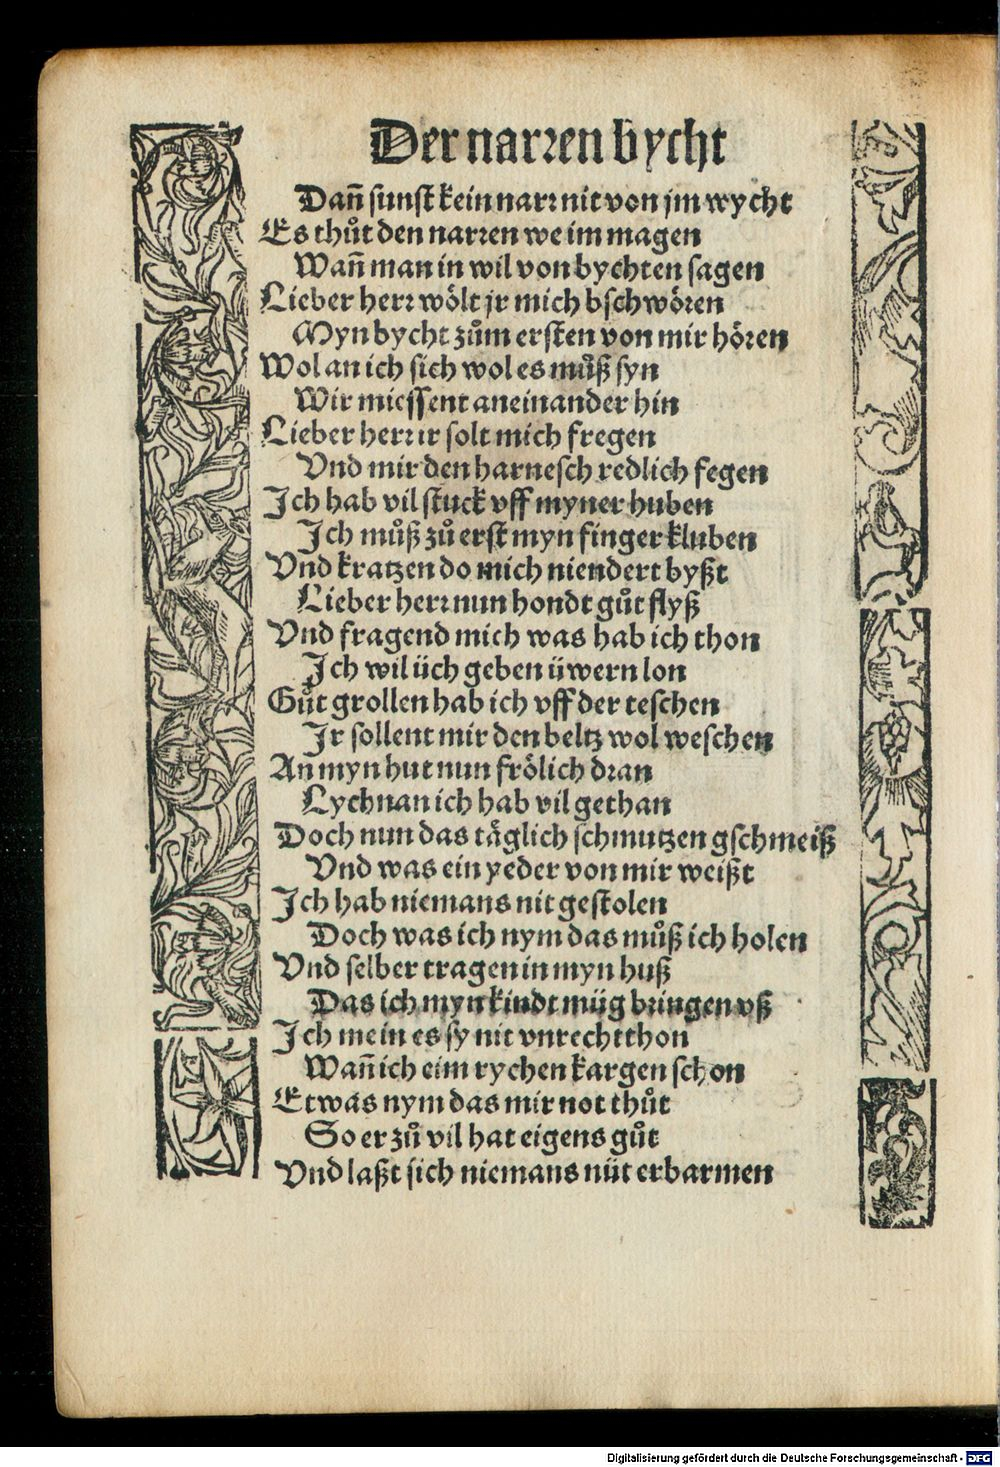 Der narren bycht
Dañ sunst kein narr nit von jm wycht
Es thůt den narren we im magen
Wañ man in wil von bychten sagen
Lieber herr wölt jr mich bschwören
Myn bycht zům ersten von mir hören
Wol an ich sich wol es můß syn
Wir miessent aneinander hin
Lieber herr ir solt mich fregen
Vnd mir den harnesch redlich fegen
Ich hab vil stuck vff myner huben
Ich můß zů erst myn finger kluben
Vnd kratzen do mich niendert byßt
Lieber herr nun hondt gůt flyß
Vnd fragend mich was hab ich thon
Ich wil üch geben üwern lon
Gůt grollen hab ich vff der teschen
Ir sollent mir den beltz wol weschen
An myn hut nun frölich dran
Lychnan ich hab vil gethan
Doch nun das täglich schmutzen gschmeiß
Vnd was ein yeder von mir weißt
Ich hab niemans nit gestolen
Doch was ich nym das můß ich holen
Vnd selber tragen in myn huß
Das ich myn kindt müg bringen vß
Ich mein es sy nit vnrecht thon
Wañ ich eim rychen kargen schon
Etwas nym das mir not thůt
So er zů vil hat eigens gůt
Vnd laßt sich niemans nüt erbarmen
Digitalisierung gefördert durch die Deutsche Forschungsgemeinschaft - DFG